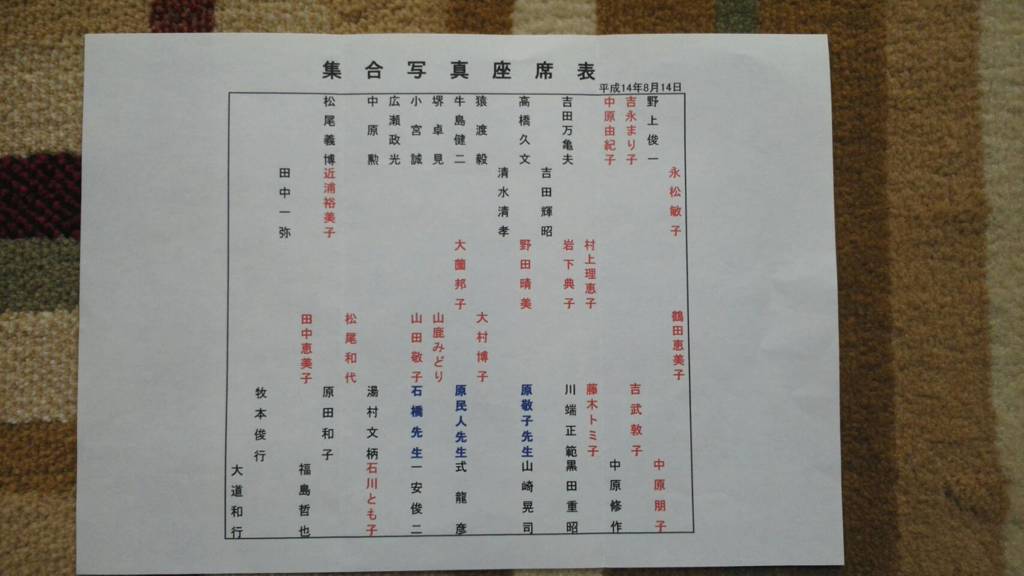 集合写真座席表
平成14年8月14日
野上俊一
吉永まり子
中原由紀子
吉田万亀夫
高橋久文
猿渡毅
牛島健二
堺卓見
小宮誠
広瀬政光
中原勲
松尾義博
永松敏子
吉田輝昭
清水清孝
近浦裕美子
田中一弥
村上理恵子
岩下典子
野田晴美
大薗邦子
鶴田恵美子
大村博子
山鹿みどり
山田敬子
松尾和代
田中恵美子
吉武敦子
藤木トミ子
川端正範
原敬子先生
原民人先生
石橋先生
湯村文柄
原田和子
牧本俊行
中原朋子
中原修作
黒田重昭
山崎晃司
式龍彦
一安俊二
石川とも子
福島哲也
大道和行